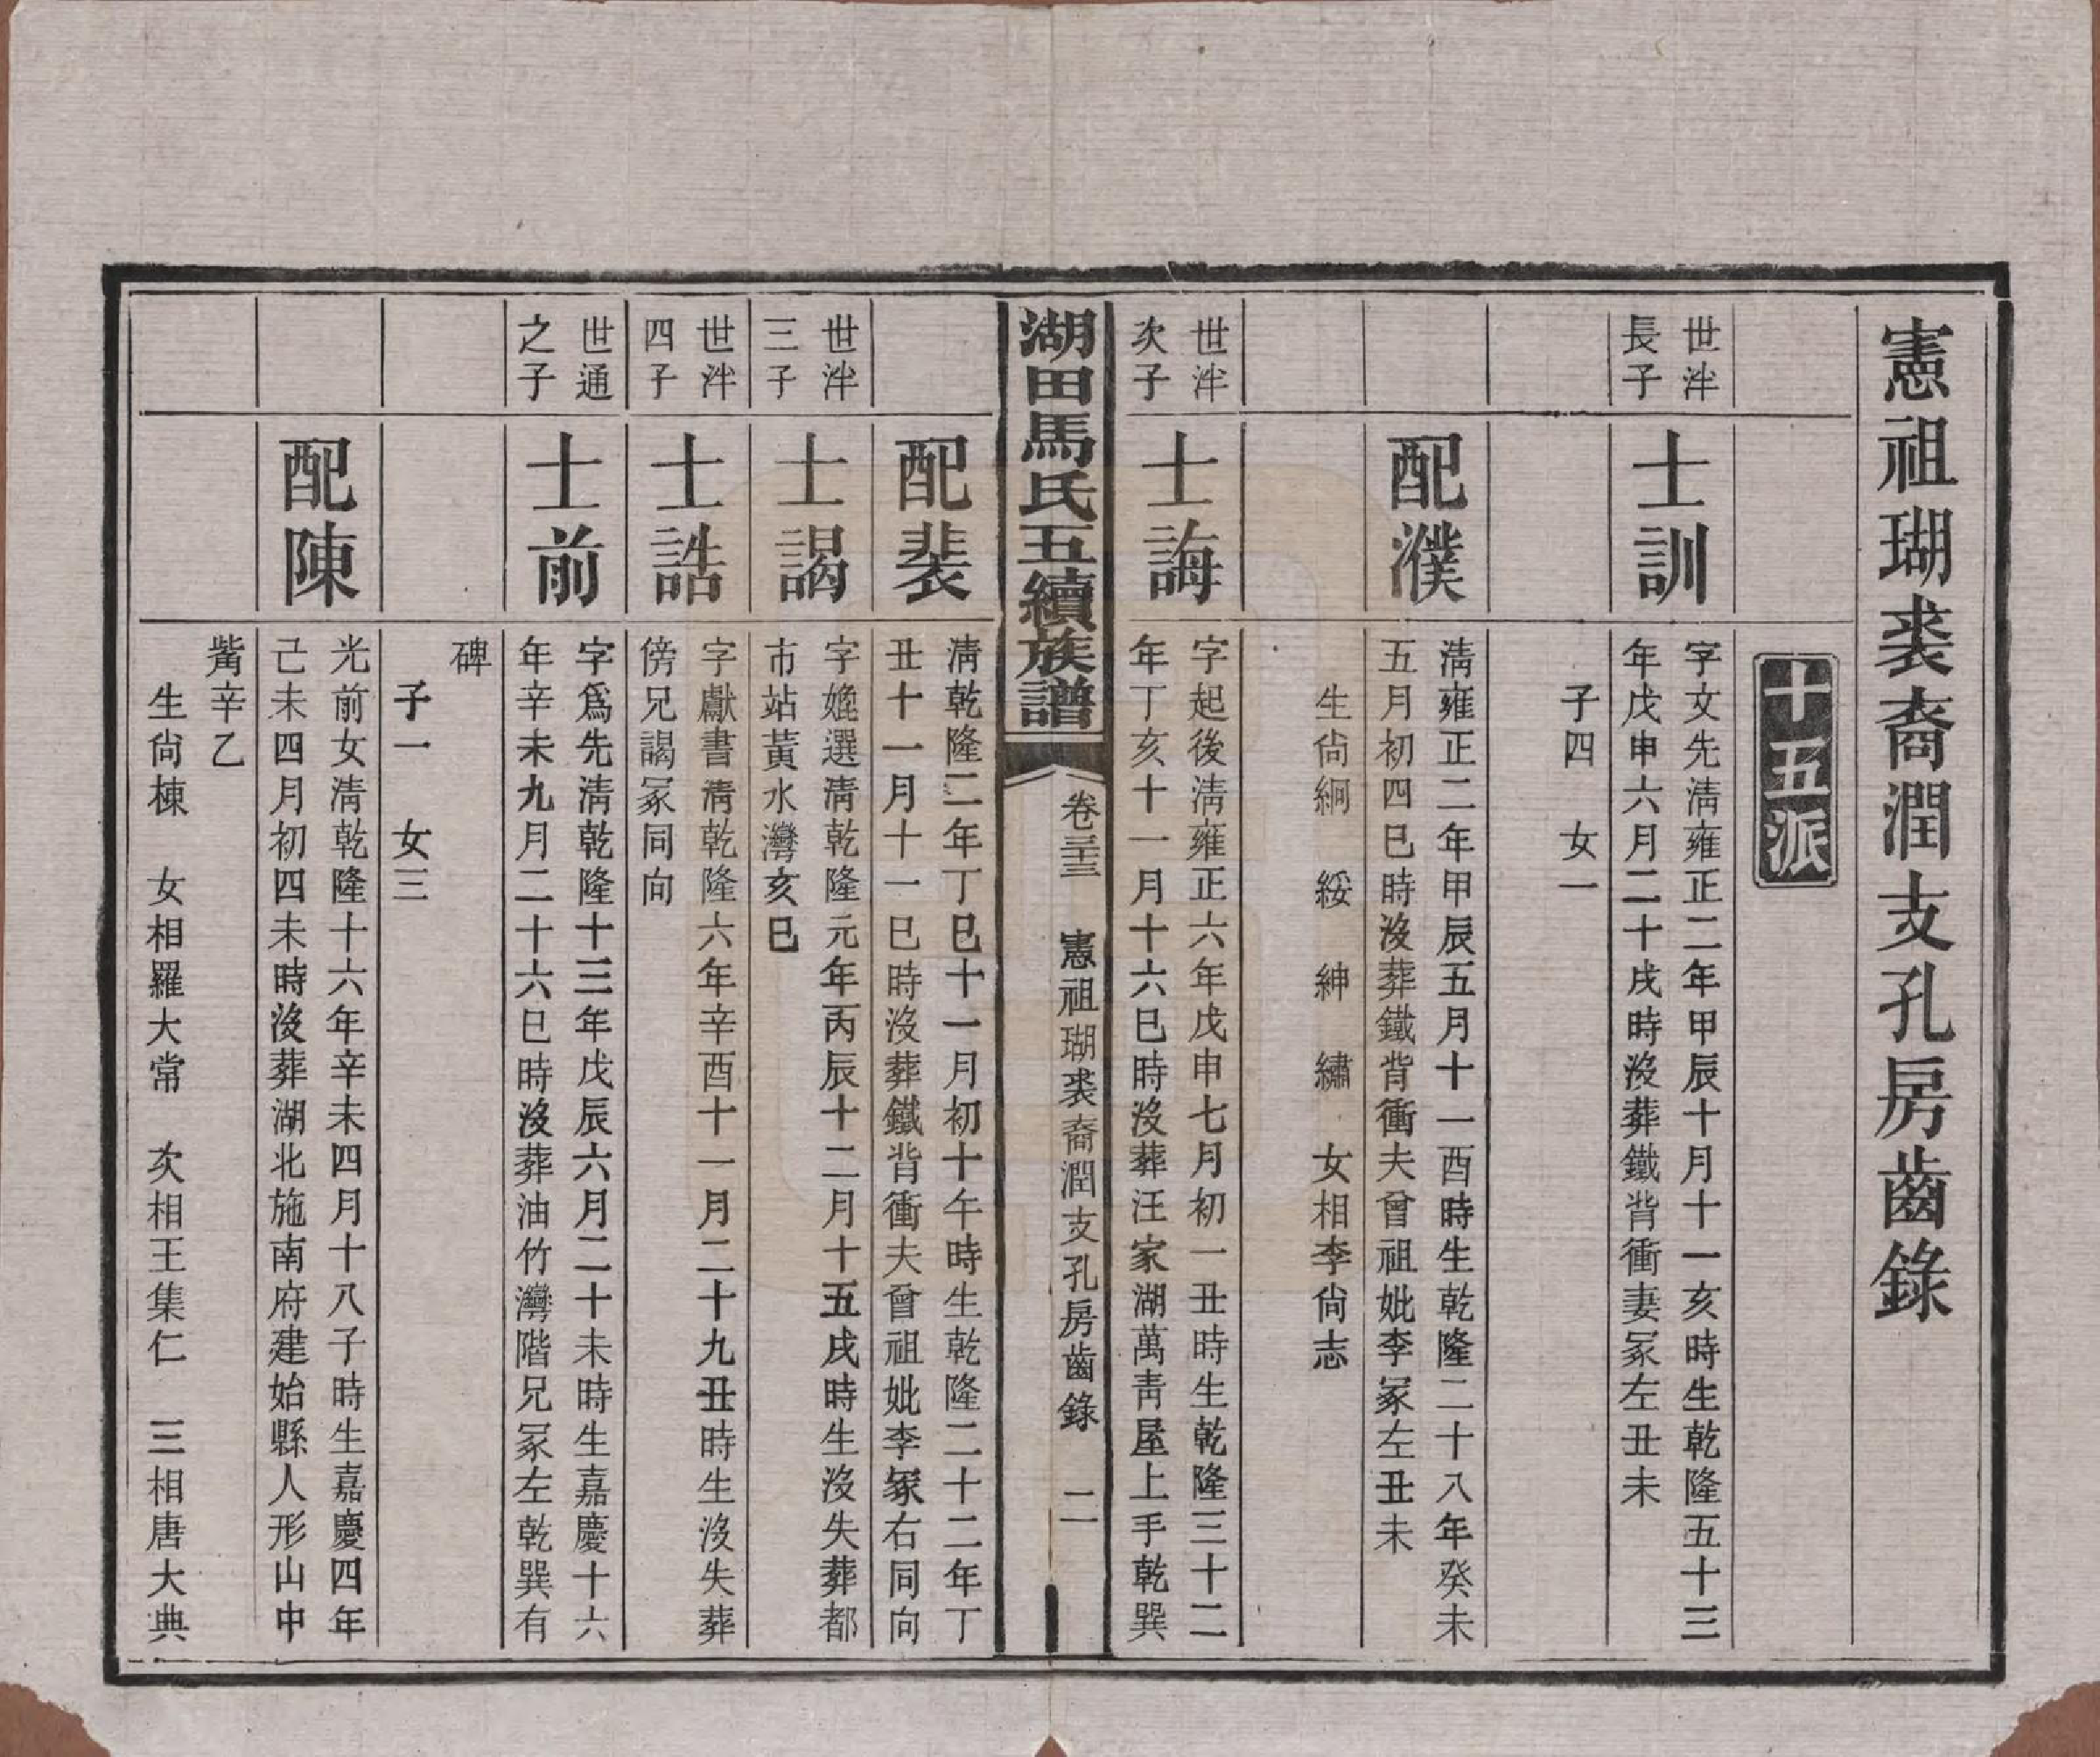 憲祖瑚裘裔潤支孔房齒錄
十五派
世泮
長子
士訓
字文先淸雍正二年甲辰十月十一亥時生乾隆五十三
年戊申六月二十戌時沒葬鐵背衝妻冢左丑未
子四　女一
配濮
淸雍正二年甲辰五月十一酉時生乾隆二十八年癸未
五月初四巳時沒葬鐵背衝夫曾祖妣李冢左丑未
生尙綱　綏　紳　繡　女相李尙志
世泮
次子
士誨
字起後淸雍正六年戊申七月初一丑時生乾隆三十二
年丁亥十一月十六巳時沒葬汪家湖萬靑屋上手乾巽
湖田馬氏五續族譜
卷三十三　憲祖瑚裘裔潤支孔房齒錄　二
配裴
淸乾隆二年丁巳十一月初十午時生乾隆二十二年丁
丑十一月十一巳時沒葬鐵背衝夫曾祖妣李冢右同向
世泮
三子
士謁
字嬎選淸乾隆元年丙辰十二月十五戌時生沒失葬都
市站黃水灣亥巳
世泮
四子
士誥
字獻書淸乾隆六年辛酉十一月二十九丑時生沒失葬
傍兄謁冢同向
世通
之子
士前
字爲先淸乾隆十三年戊辰六月二十未時生嘉慶十六
年辛未九月二十六巳時沒葬油竹灣階兄冢左乾巽有
碑
子一　女三
配陳
光前女淸乾隆十六年辛未四月十八子時生嘉慶四年
己未四月初四未時沒葬湖北施南府建始縣人形山中
嘴辛乙
生尙棟　女相羅大常　次相王集仁　三相唐大典